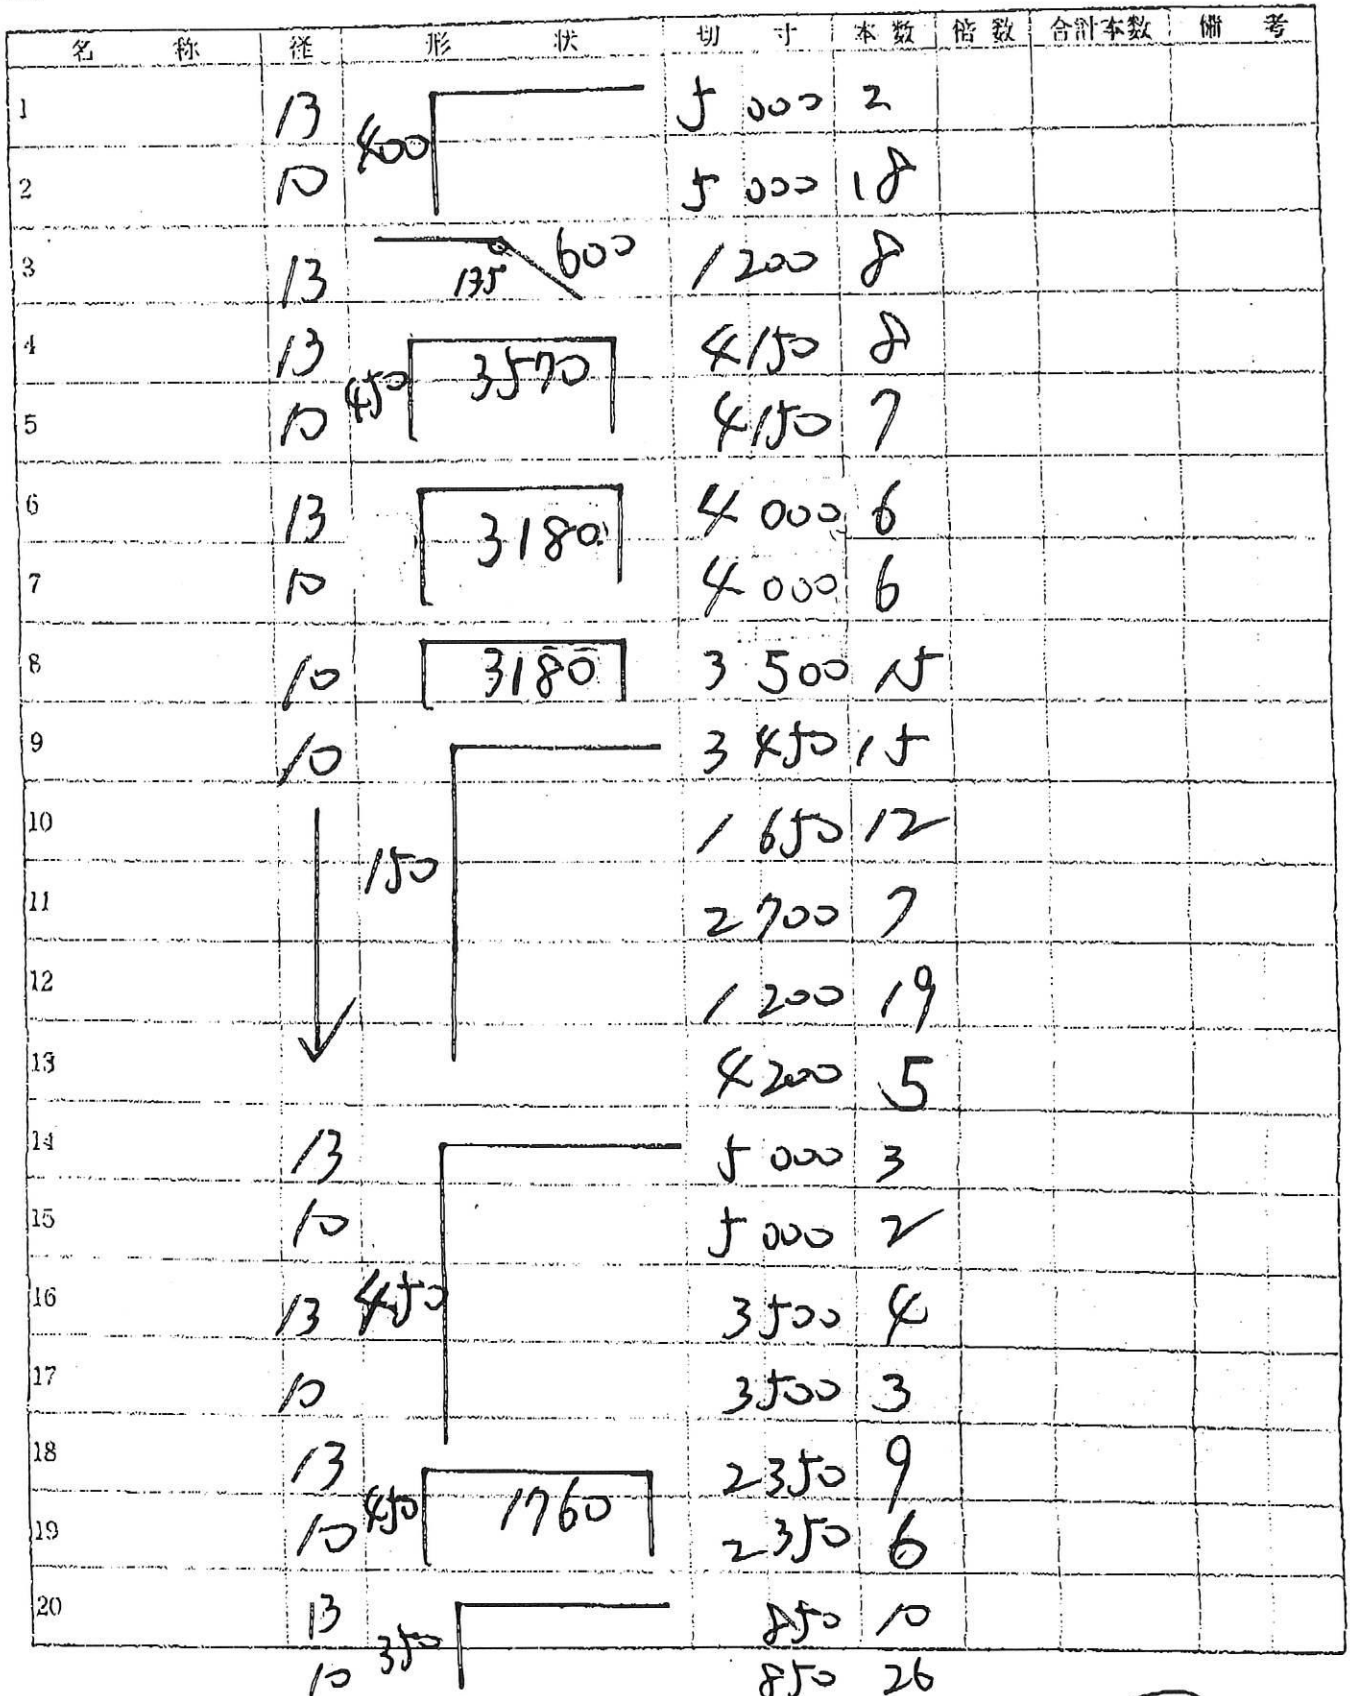 名 称 径 形 状 切 寸 本数 倍数 合計本数 備 考
1 13 400 5 000 2
2 10 5 000 18
3 13 135 600 1 200 8
4 13 450 3570 4150 8
5 10 4150 7
6 13 3180 4 000 6
7 10 4 000 6
8 10 3180 3 500 15
9 10 3 450 15
10 150 1 650 12
11 2 700 7
12 1 200 19
13 4 200 5
14 13 5 000 3
15 10 5 000 2
16 13 450 3500 4
17 10 3500 3
18 13 450 1760 2350 9
19 10 2350 6
20 13 350 850 10
10 850 26